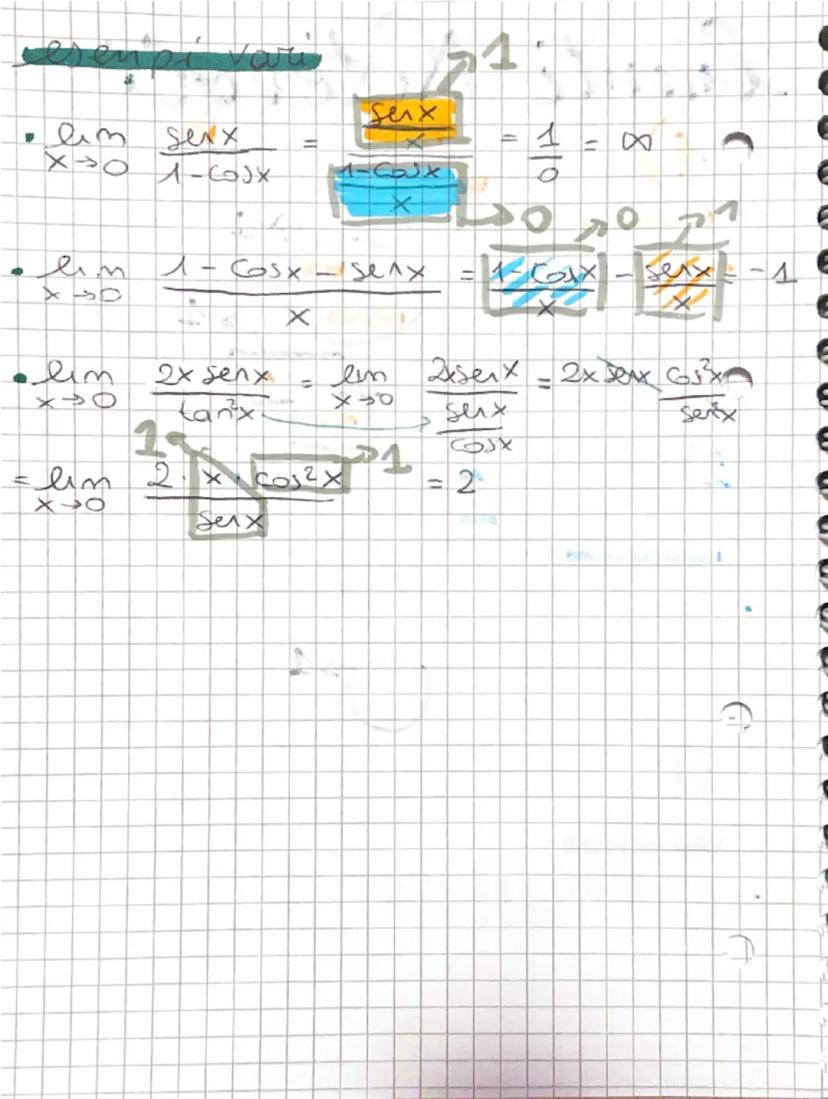 esempi vari
• lim x→0 sen x / 1-cosx = (sen x / x → 1) / (1-cosx / x → 0) = 1/0 = ∞
• lim x→0 1 - cosx - senx / x = 1-cosx / x → 0 - senx / x → 1 = -1
• lim x→0 2x senx / tan²x = lim x→0 2xsenx / (senx / cosx) = 2x senx cos²x / sen²x
= lim x→0 2 · x · cos²x / senx = 2
1 → 1